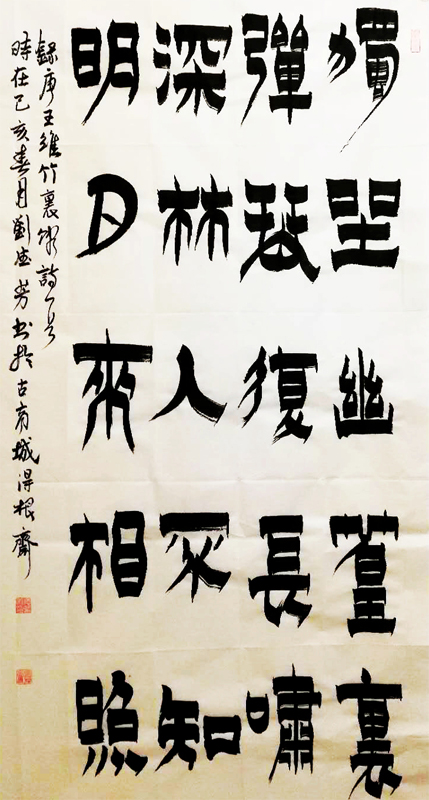 獨坐幽篁裏
彈琴復長嘯
深林人不知
明月來相照
錄唐王維竹裏館詩一首
時在己亥春月劉 芳书於古 城得根齋